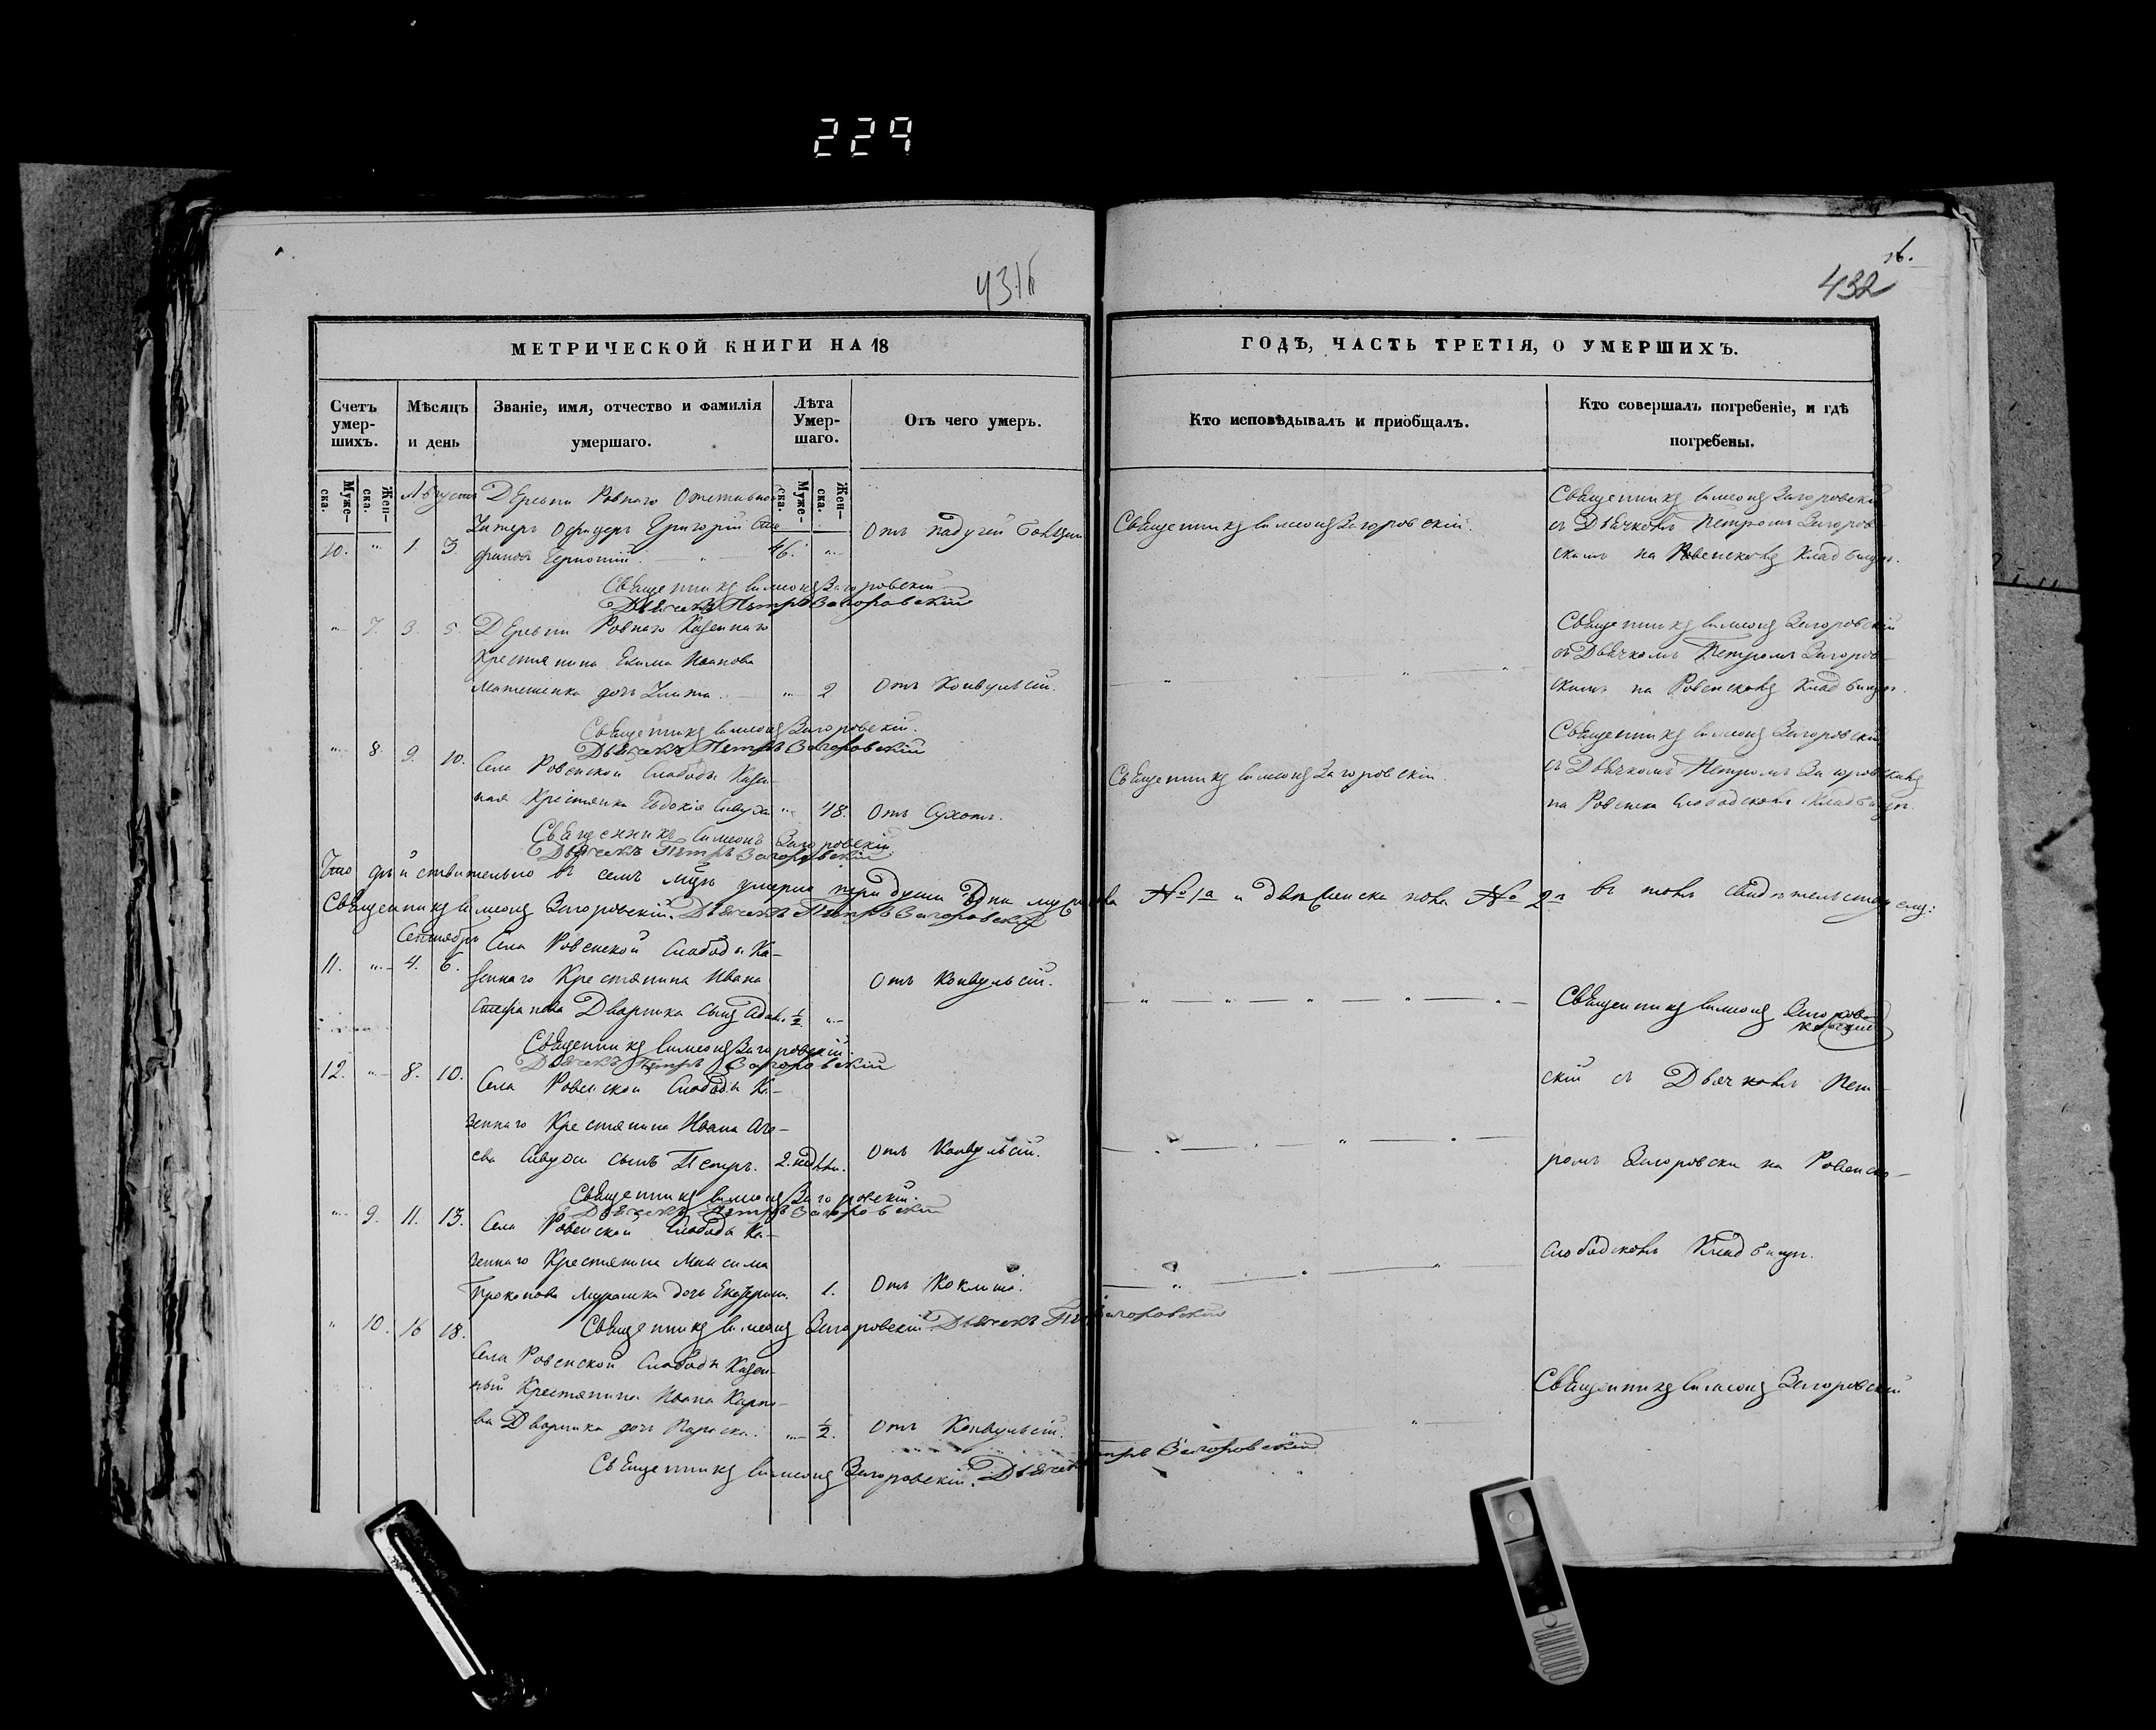 229
431
16.
432
МЕТРИЧЕСКОЙ КНИГИ НА 18
ГОДЪ, ЧАСТЬ ТРЕТІЯ, О УМЕРШИХЪ.
Счетъ умер-шихъ.
Мѣсяцъ и день
Званіе, имя, отчество и фамилія умершаго.
Лѣта Умер-шаго.
Отъ чего умеръ.
Кто исповѣдывалъ и приобщалъ.
Кто совершалъ погребеніе, и гдѣ погребены.
Муже-ска.
Жен-ска.
Муже-ска.
Жен-ска.
Августъ
Деревни Ровнаго
Унтеръ Офицеръ Григорій Сте
10. " 1. 3. фановъ 46. "
Отъ падучей болѣзни
Священникъ Симеонъ Загоровскій.
Священникъ Симеонъ Загоровскій
съ Дьячкомъ Петромъ Загоров
скимъ на Ровенскомъ Кладбищѣ.
Священникъ Симеонъ Загоровскій
Дьячекъ Петръ Загоровскій
" 7. 3. 5. Деревни Ровнаго Казеннаго
Крестянина Екима Иванова
дочь " 2 Отъ Конвульсіи.
Священникъ Симеонъ Загоровскій
съ Дьячкомъ Петромъ Загоров
скимъ на Ровенскомъ Кладбищѣ.
Священникъ Симеонъ Загоровскій.
Дьячекъ Петръ Загоровскій
" 8. 9. 10. Села Ровенской Слободы Казен
ная Крестянка Евдокія Сивуха " 48. Отъ Сухоты.
Священникъ Симеонъ Загоровскій.
Священникъ Симеонъ Загоровскій
съ Дьячкомъ Петромъ Загоровскимъ
на Ровенско Слободскомъ Кладбищѣ.
Священникъ Симеонъ Загоровскій.
Дьячекъ Петръ Загоровскій
Что дѣйствительно въ семъ мцѣ умерло три души Одна мужеска № 1а и двѣ женска пола № 2а въ томъ свидѣтельствуемъ:
Священникъ Симеонъ Загоровскій. Дьячекъ Петръ Загоровскій
Сентябрь
Села Ровенской Слободы Ка-
11. " 4. 6. зеннаго Крестянина Ивана
Стефанова Дворника сынъ Адамъ 1/2. "
Отъ Конвульсіи.
Священникъ Симеонъ Загоров
Священникъ Симеонъ Загоровскій.
Дьячекъ Петръ Загоровскій
12. " 8. 10. Села Ровенской Слободы Ка-
зеннаго Крестянина Ивана
Сивухи сынъ Петръ. 2. недѣли.
Отъ Конвульсіи.
скій съ Дьячкомъ Пет-
ромъ Загоровски на Ровенско-
Священникъ Симеонъ Загоровскій.
Дьячекъ Петръ Загоровскій
" 9. 11. 13. Села Ровенской Слободы Ка-
зеннаго Крестянина Максима
Прокопова Мурашка дочь Екатерина. 1. Отъ Коклюша.
Слободскомъ Кладбищѣ.
Священникъ Симеонъ Загоровскій Дьячекъ Петръ Загоровскій
" 10. 16 18.
Села Ровенской Слободы Казен-
ный Крестянина Ивана Карпо-
ва Дворника дочь Параска. " 1/2. Отъ Конвульсіи.
Священникъ Симеонъ Загоровскій
Священникъ Симеонъ Загоровскій. Дьячекъ Петръ Загоровскій